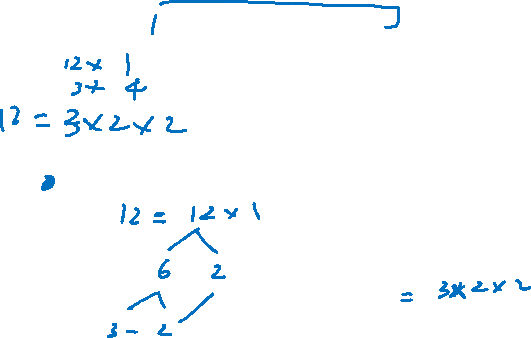 12 × 1
3 × 4
12 = 3 × 2 × 2
12 = 12 × 1
6 2
3 - 2
= 3 × 2 × 2